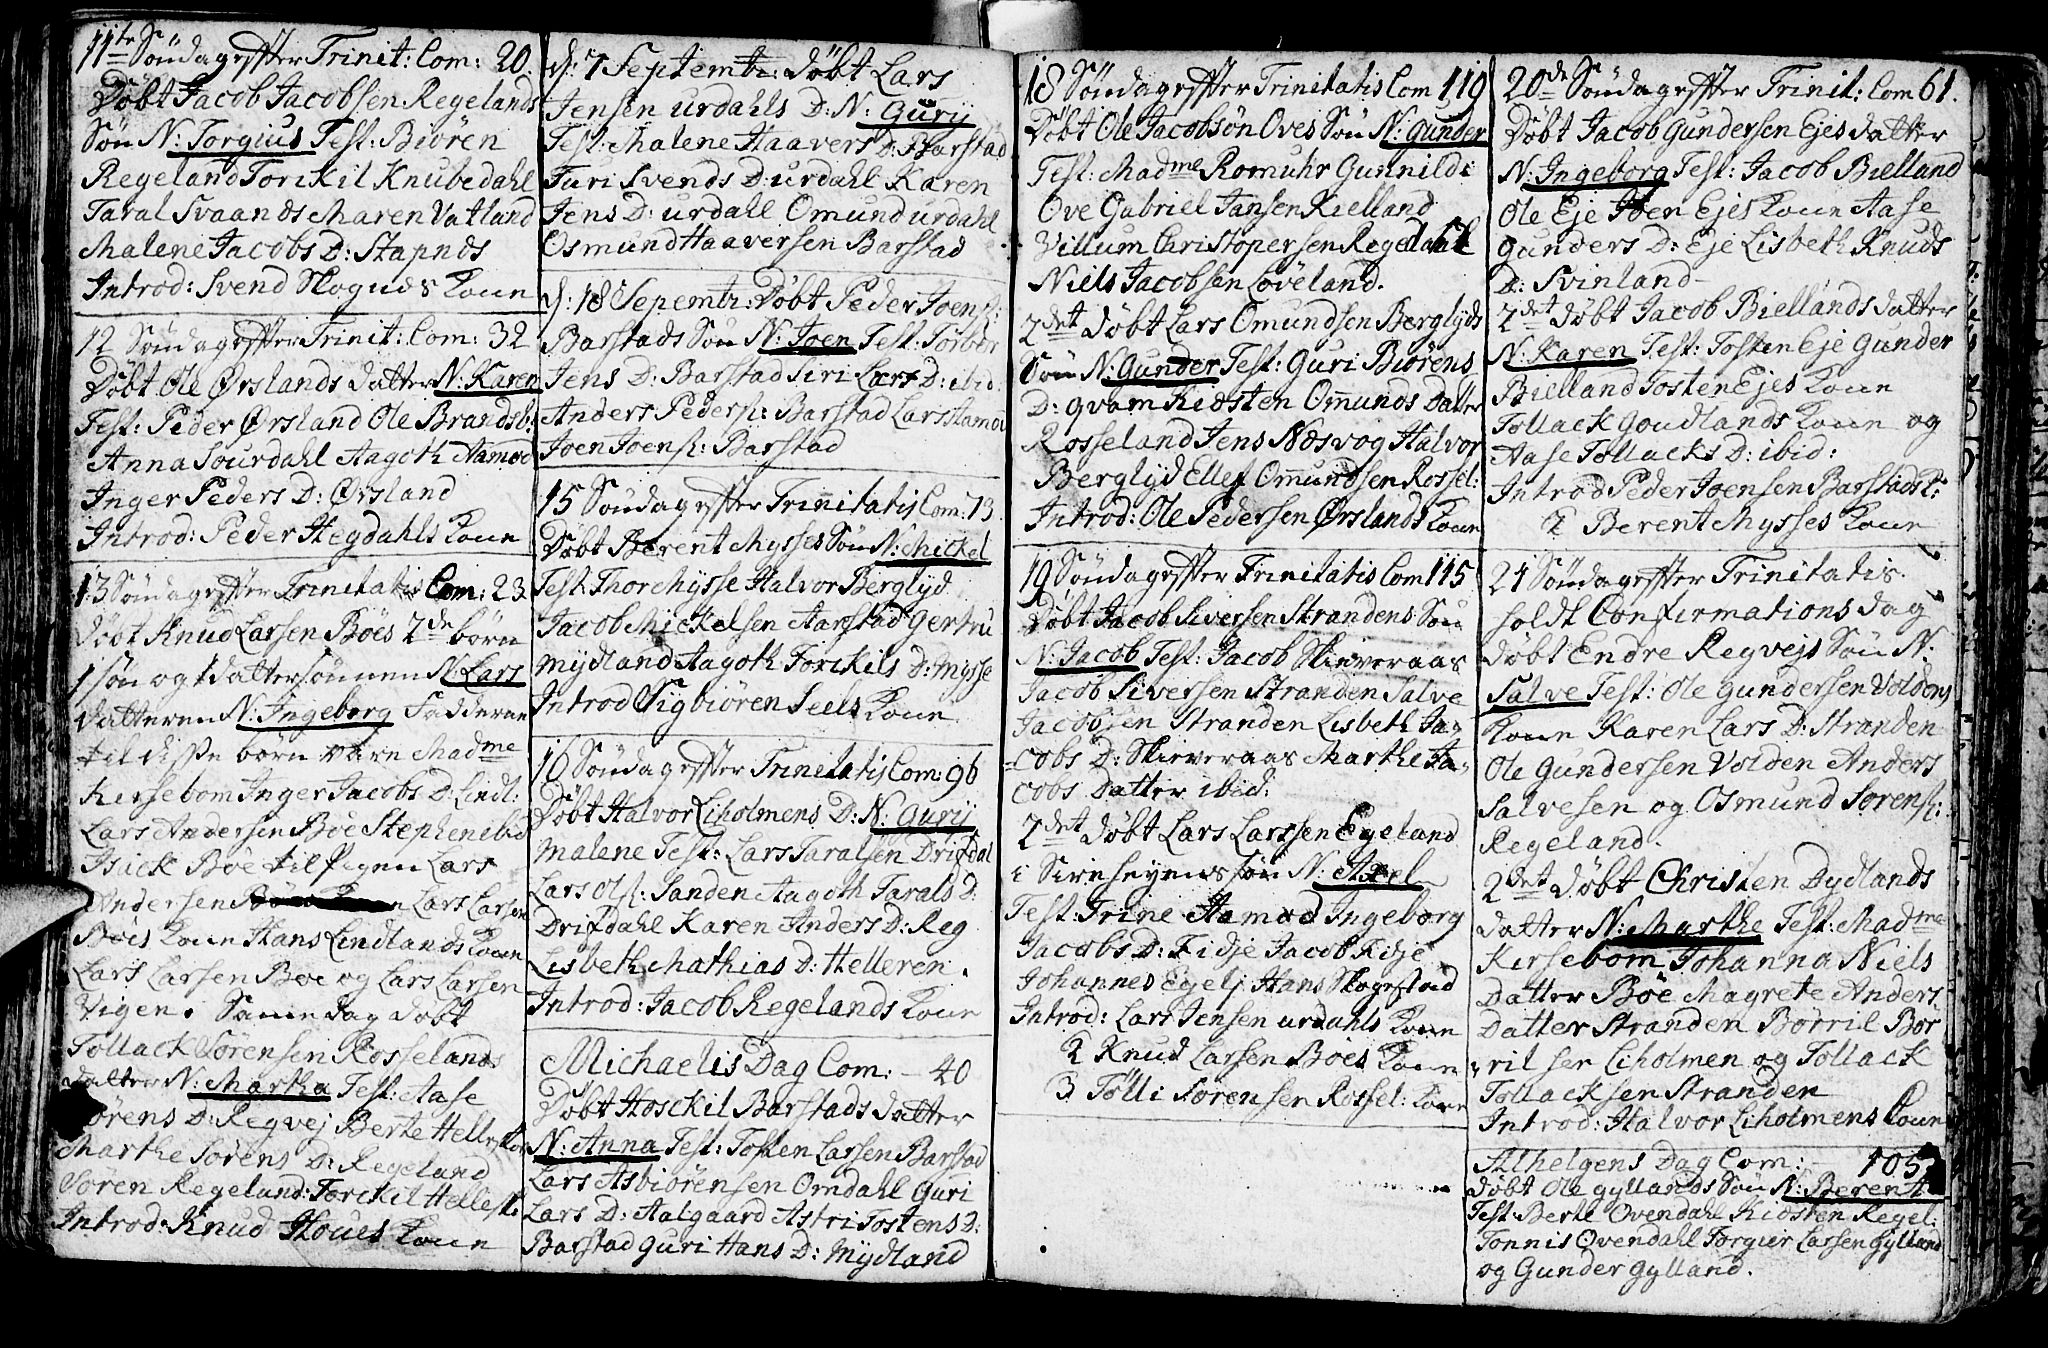 11te Söndag effter Trinit: Com: 20
Döbt Jacob Jacobsen Regelands
Søn N: Torgius Test: Biören
Regeland Torckil Knubedahl
Taral Svaands Maren Vatland
Malene Jacobs D: Stapnes
Introd: Svend Skognes Kone
12 Söndag effter Trinit: Com: 32
Döbt Ole Ørslands datter N: Karen
Test: Peder Ørsland Ole Brandsb:
Anna Sourdahl Aagoth Aamod
Inger Peders D: Ørsland
Introd: Peder Hegdahls Kone
13 Söndag effter Trinitatis Com: 23
döbt Knud Larsen Böes 2de börn
1 sön og 1 datter sönnen N: Lars
datteren N: Ingeborg Fadderne
til disse börn vare Madme
Kersebom Inger Jacobs D: Lindl:
Lars Andersen Böe Stephen ibid
Isack Böe til pigen Lars
Andersen Lars Larsen
Böes Kone Hans Lindlands Kone
Lars Larsen Böe og Lars Larsen
Vigen. Samme dag döbt
Tollack Sörensen Rosselands
datter N: Martha Test: Aase
Sörens D: Regvej Berte Hellesk:
Marthe Sörens D: Regeland
Sören Regeland: Torckil Hellesk:
Introd: Knud Houes Kone
d: 7 Septembr: döbt Lars
Jensen urdahls D: N: Gurij
Test: Malene Haavers D: Barstad
Turi Svends D: urdahl Karen
Jens D: urdahl Omund urdahl
Osmund Haaversen Barstad
d: 18 Sepembr: Döbt Peder Joens:
Barstads Søn N: Joen Test: Torbör
Jens D: Barstad Siri Lars D: ibid.
Anders Peders: Barstad Lars Aamod
Joen Joens: Barstad
15 Söndag effter Trinitatis Com: 73
Döbt Berent Mysses Søn N: Mickel
Test: Thore Mysse Halvor Berglyd
Jacob Mickelsen Aarstad Gertru
Mydland Aagoth Torckils D: Mysse
Introd Sigbiören Seels Kone
16 Söndag effter Trinitatis Com: 96
Döbt Halvor Liholmens D: N: Gurij
Malene Test: Lars Taralsen Drifdal
Lars Ols: Sanden Aagoth Tarals D:
Drifdahl Karen Anders D: Reg
Lisbeth Mathias D: Helleren.
Introd: Jacob Regelands Kone
Michaelis Dag Com: - 40
Döbt Hosckil Barstads datter
N: Anna Test: Tosten Larsen Barstad
Lars Asbiörensen Omdahl Guri
Lars D: Aalgaard Astri Tostens D:
Barstad Guri Hans D: Mydland
18 Söndag effter Trinitatis Com 119
Döbt Ole Jacobsøn Oves Søn N: Gunder
Test: Madme Romuhr Gunnild
Ove Gabriel Jansen Kielland
Villum Christopersen Regedahl
Niels Jacobsen Löveland.
2det döbt Lars Omundsen Berglyds
Søn N: Gunder Test: Guri Biörens
D: Qvam Kidsten Omunds Datter
Rosseland Jens Næsvog Halvor
Berglyd Ellef Omundsen Rossel:
Introd: Ole Pedersen Ørslands Kone
19 Söndag effter Trinitatis Com 115
Döbt Jacob Siversen Strandens Søn
N: Jacob Test: Jacob Skieveraas
Jacob Siversen Stranden Salve
Jacobsen Stranden Lisbeth Ja-
cobs D: Skieveraas Marthe Ja-
cobs Datter ibid:
2det döbt Lars Larssen Egeland
i Sireheyens søn N: Axel
Test: Trine Aamod Ingeborg
Jacobs D: Fidje Jacob Fidje
Johannes Egelj Hans Skogestad
Introd: Lars Jensen urdahls Kone
2 Knud Larsen Böes Kone
3 Tölli Sörensen Rossel: Kone
20de Söndag effter Trinit: Com 61.
Döbt Jacob Gundersen Ejes datter
N: Ingeborg Test: Jacob Bielland
Ole Eje Joen Ejes Kone Aase
Gunders D: Eje Lisbeth Knuds
D: Svinland -
2det döbt Jacob Biellands datter
N: Karen Test: Tosten Eje Gunder
Bielland Tosten Ejes Kone
Tollack Goudlands Kone og
Aase Tollacks D: ibid:
Introd Peder Joensen Barstads K:
2 Berent Mysses Kone
21 Söndag effter Trinitatis.
holdt Confirmations dag
döbt Endre Regvejs Søn N.
Salve Test: Ole Gundersen Voldens
Kone Karen Lars D: Stranden
Ole Gundersen Volden Anders
Salvesen og Osmund Sörens:
Regeland.
2det döbt Christen Dydlands
datter N: Marthe Test: Madme
Kersebom Johanna Niels
Datter Böe Magrete Anders
Datter Stranden Börril Bör
ril sen Liholmen og Tollack
Tollacksen Stranden
Introd: Halvor Liholmens Kone
Alhelgens Dag Com: 105
döbt Ole Gyllands Søn N: Berent
Test: Berte Ovendahl Kidsten Regel:
Tonnis Ovendahl Torgier Larsen Gylland
og Gunder Gylland.